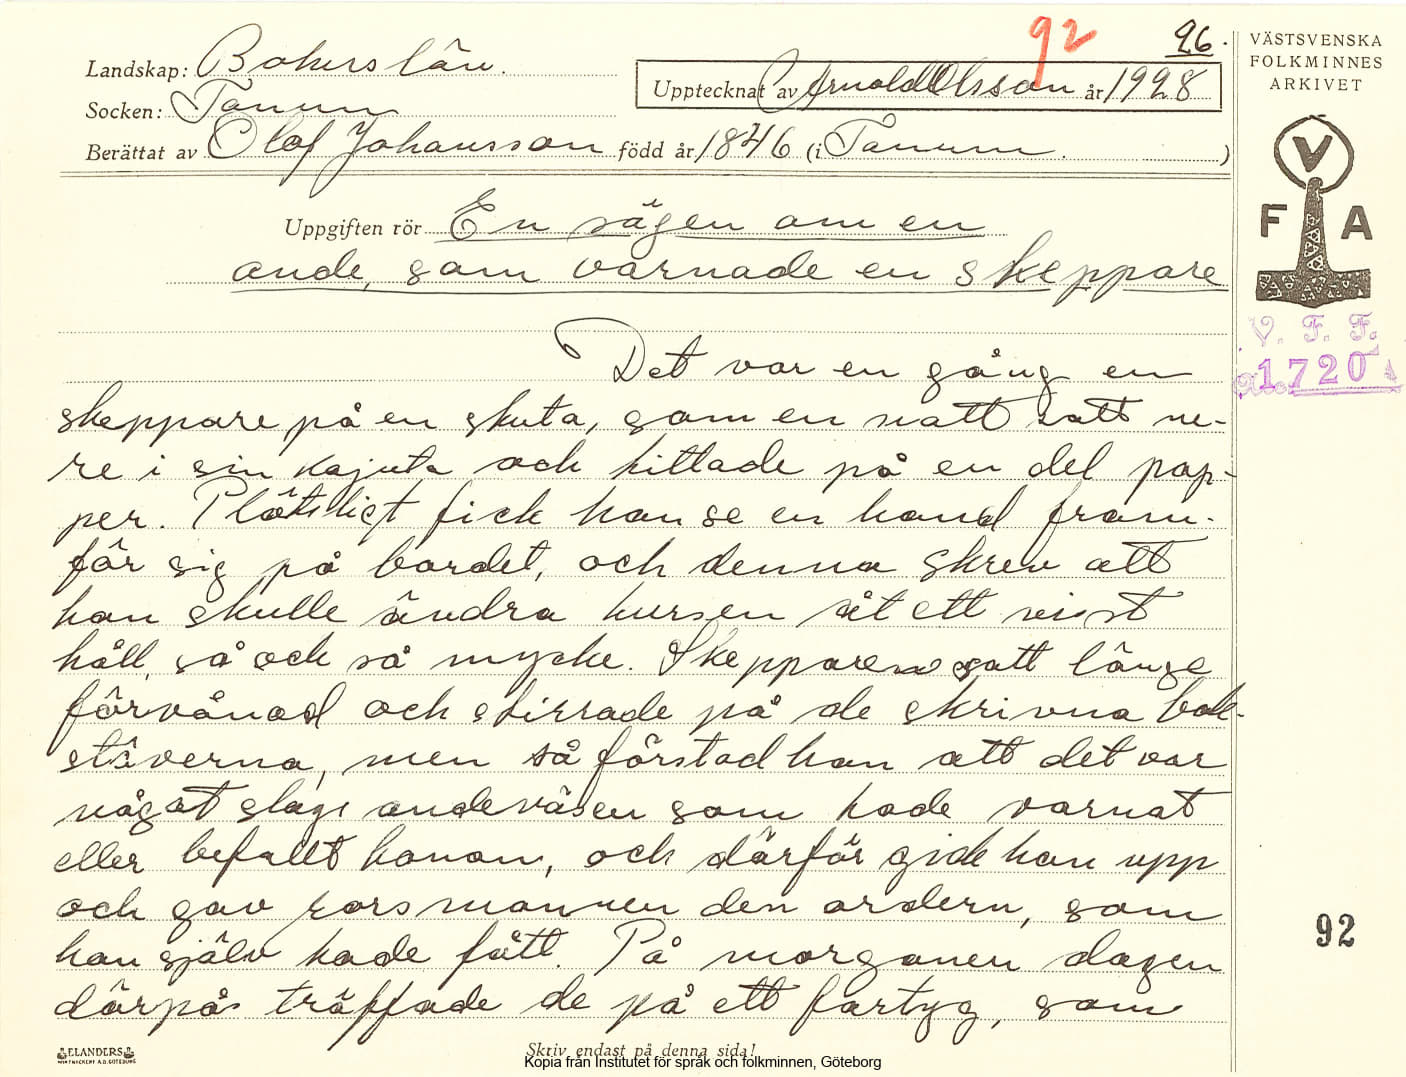 92
26.
Landskap: Bohuslän.
Upptecknat av Arnold Olsson år 1928
Socken: Tanum
Berättat av Olof Johansson född år 1846 (i Tanum. )
Uppgiften rör En sägen om en
ande, som varnade en skeppare
Det var en gång en
skeppare på en skuta, som en natt satt ne-
re i sin kajuta och tittade på en del pap-
per. Plötsligt fick han se en hand fram-
för sig på bordet, och denna skrev att
han skulle ändra kursen åt ett visst
håll, så och så mycke. Skepparen satt länge
förvånad och stirrade på de skrivna bok-
stäverna, men så förstod han att det var
något slags andeväsen som hade varnat
eller befallt honom, och därför gick han upp
och gav rorsmannen den ordern, som
han själv hade fått. På morgonen dagen
därpå träffade de på ett fartyg, som
Skriv endast på denna sida!
Kopia från Institutet för språk och folkminnen, Göteborg
ELANDERS
VÄSTSVENSKA
FOLKMINNES
ARKIVET
V
F A
V. F. F.
1720
92